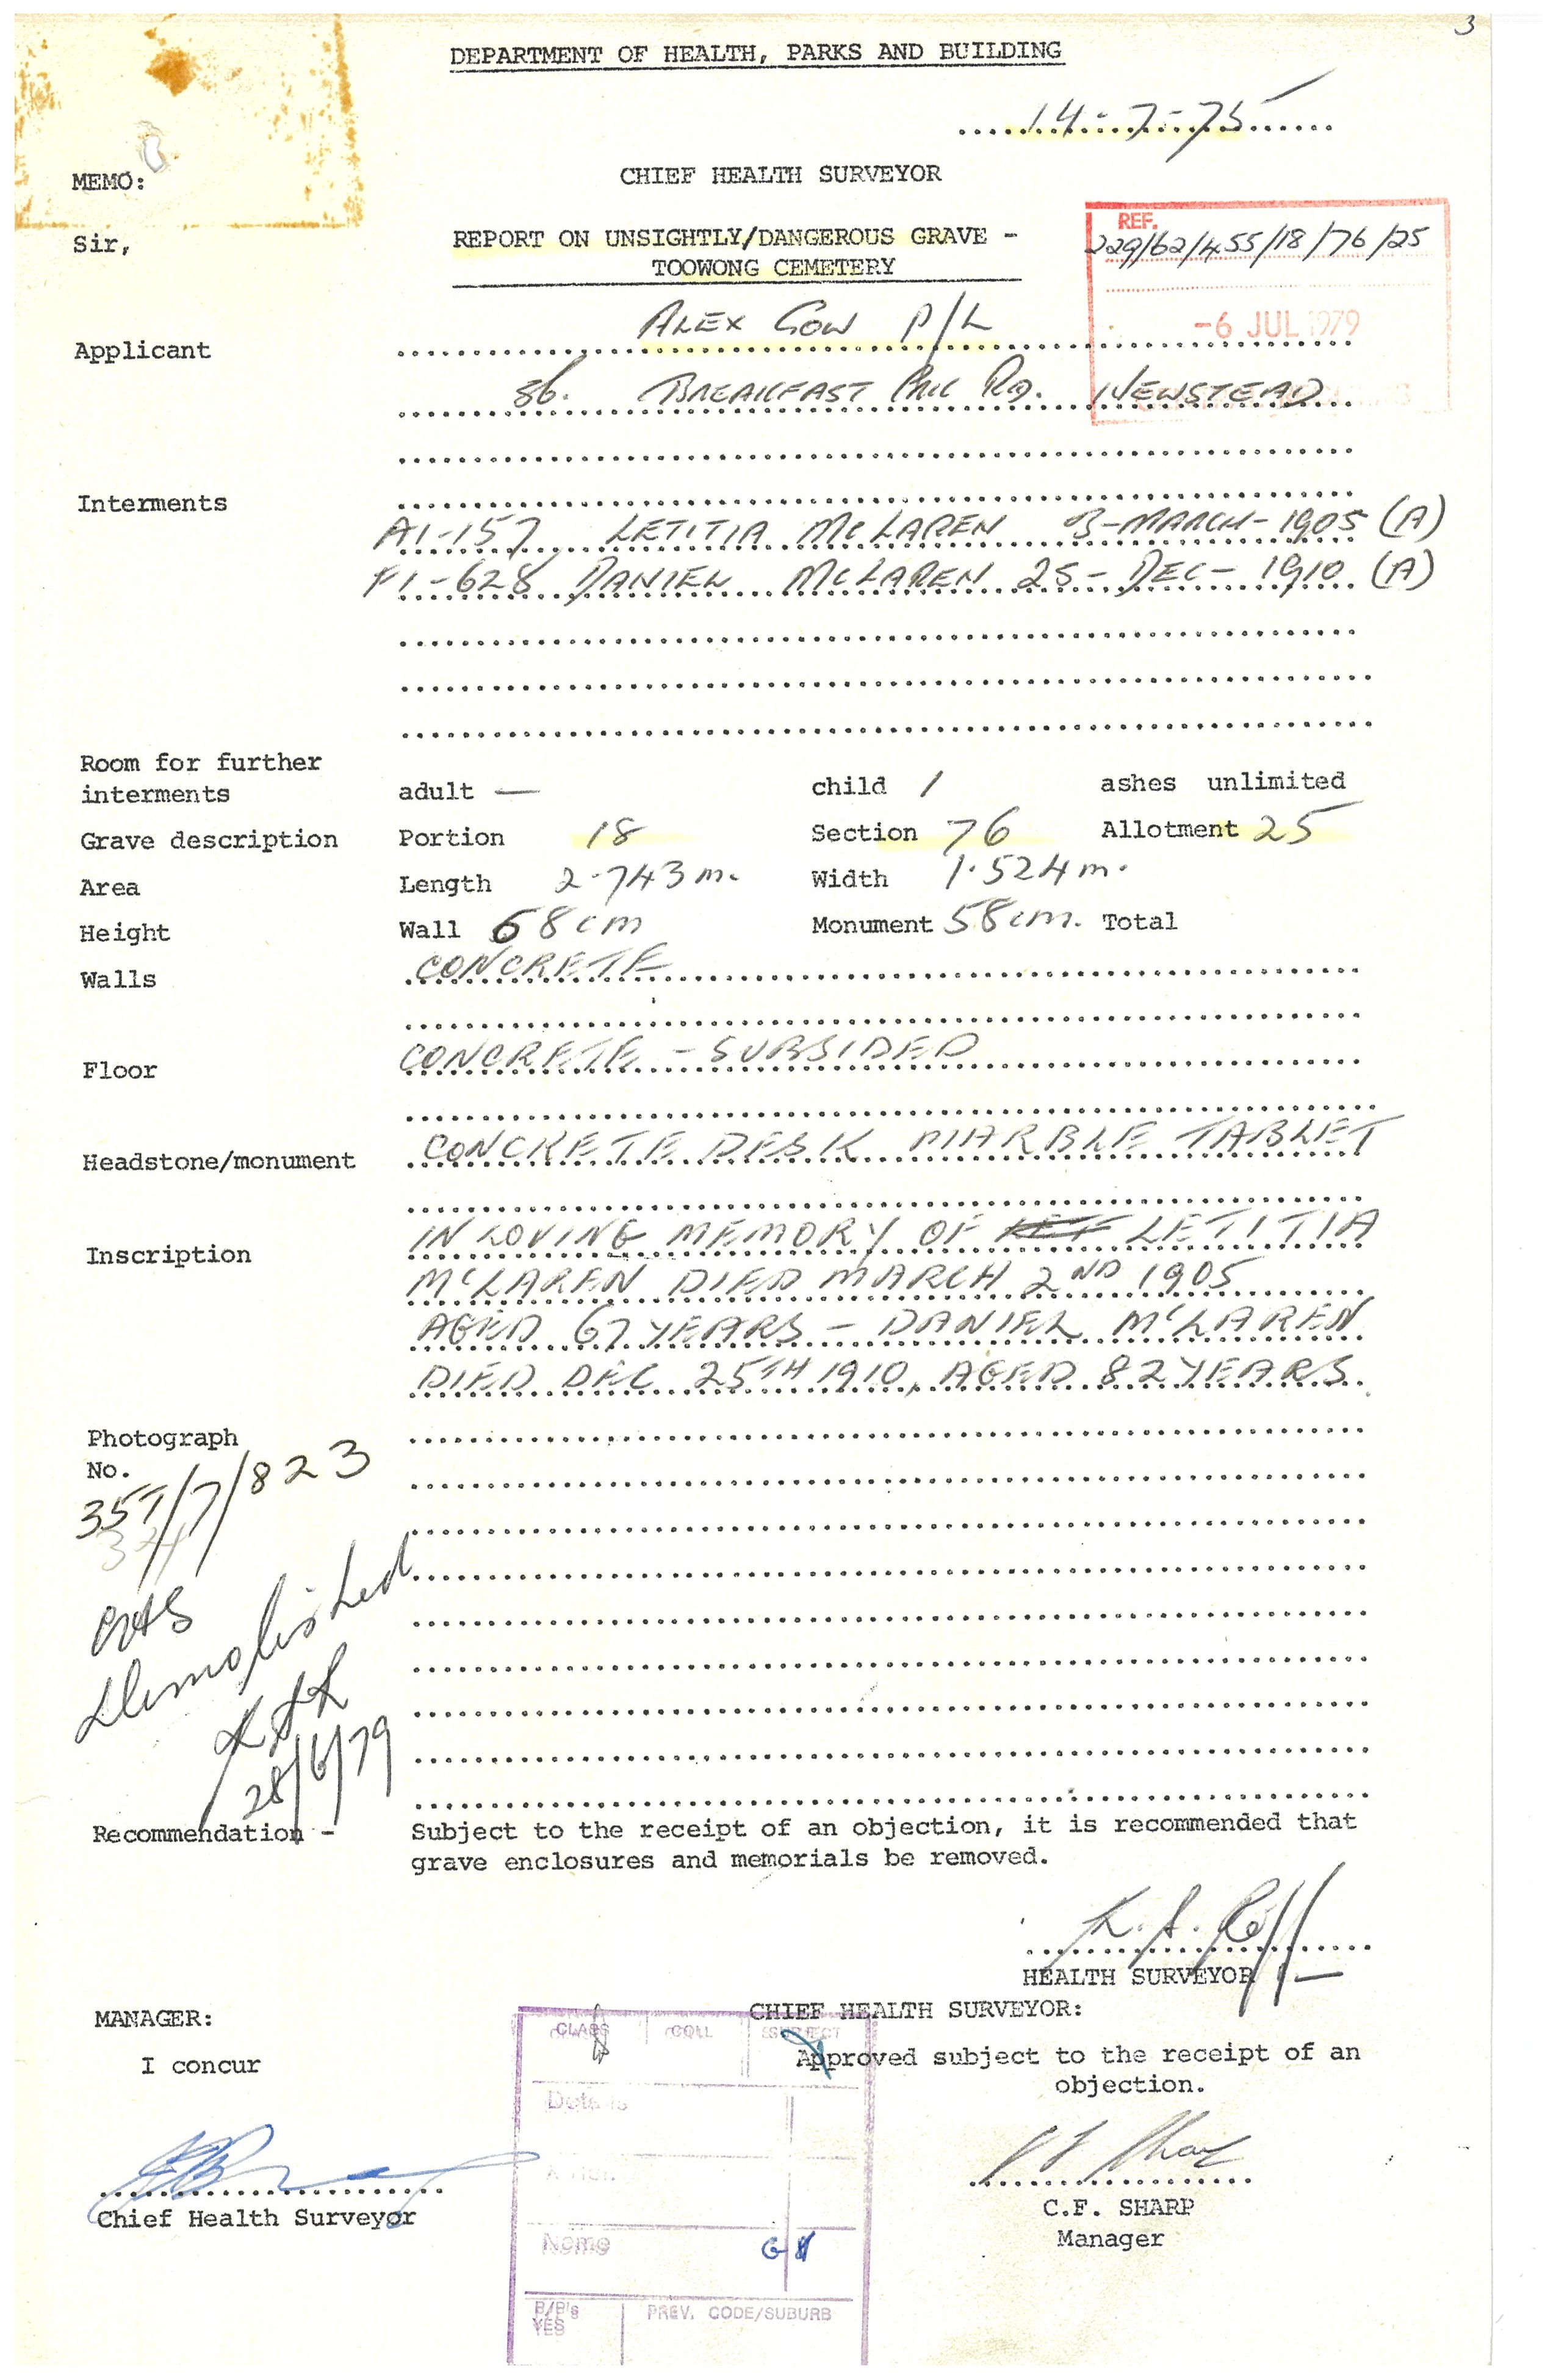 3
DEPARTMENT OF HEALTH, PARKS AND BUILDING
14-7-75
MEMO:
CHIEF HEALTH SURVEYOR
Sir,
REPORT ON UNSIGHTLY/DANGEROUS GRAVE -
TOOWONG CEMETERY
REF.
229/62/455/18/76/25
-6 JUL 1979
Applicant
ALEX GOW P/L
36. BREAKFAST CRK RD. NEWSTEAD
Interments
A1-157 LETITIA MCLAREN 3-MARCH-1905 (A)
F1-628 DANIEL MCLAREN 25-DEC-1910 (A)
Room for further
interments adult — child 1 ashes unlimited
Grave description Portion 18 Section 76 Allotment 25
Area Length 2.743m. Width 1.524m.
Height Wall 68cm Monument 58cm. Total
Walls CONCRETE
Floor CONCRETE - SUBSIDED
Headstone/monument CONCRETE DESK MARBLE TABLET
Inscription IN LOVING MEMORY OF LETITIA
MCLAREN DIED MARCH 2ND 1905
AGED 67 YEARS - DANIEL MCLAREN
DIED DEC 25TH 1910, AGED 82 YEARS.
Photograph
No.
357/7/823
Demolished
28/6/79
Recommendation - Subject to the receipt of an objection, it is recommended that
grave enclosures and memorials be removed.
HEALTH SURVEYOR
MANAGER:
CHIEF HEALTH SURVEYOR:
I concur
Approved subject to the receipt of an
objection.
CLASS COLL SUBJECT
Details
Action
Name
B/B's
YES
PREV. CODE/SUBURB
Chief Health Surveyor
C.F. SHARP
Manager